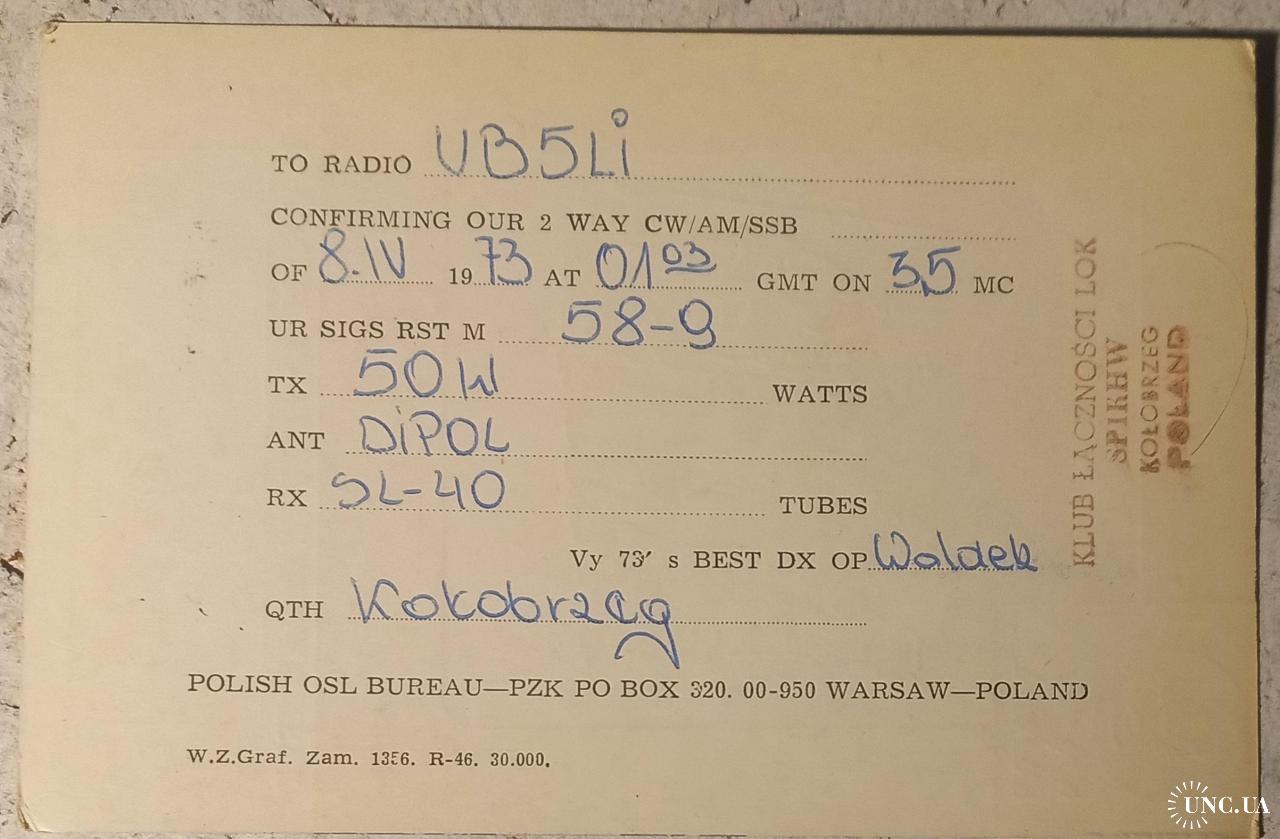 TO RADIO UB5LI
CONFIRMING OUR 2 WAY CW/AM/SSB
OF 8.IV 1973 AT 01 03 GMT ON 3,5 MC
UR SIGS RST M 58-9
TX 50W WATTS
ANT DiPOL
RX SL-40 TUBES
Vy 73' s BEST DX OP Woldek
QTH Kołobrzeg
POLISH QSL BUREAU—PZK PO BOX 320. 00-950 WARSAW—POLAND
W.Z.Graf. Zam. 1356. R-46. 30.000.
KLUB ŁĄCZNOŚCI LOK
SP1KHW
KOŁOBRZEG
POLAND
UNC.UA